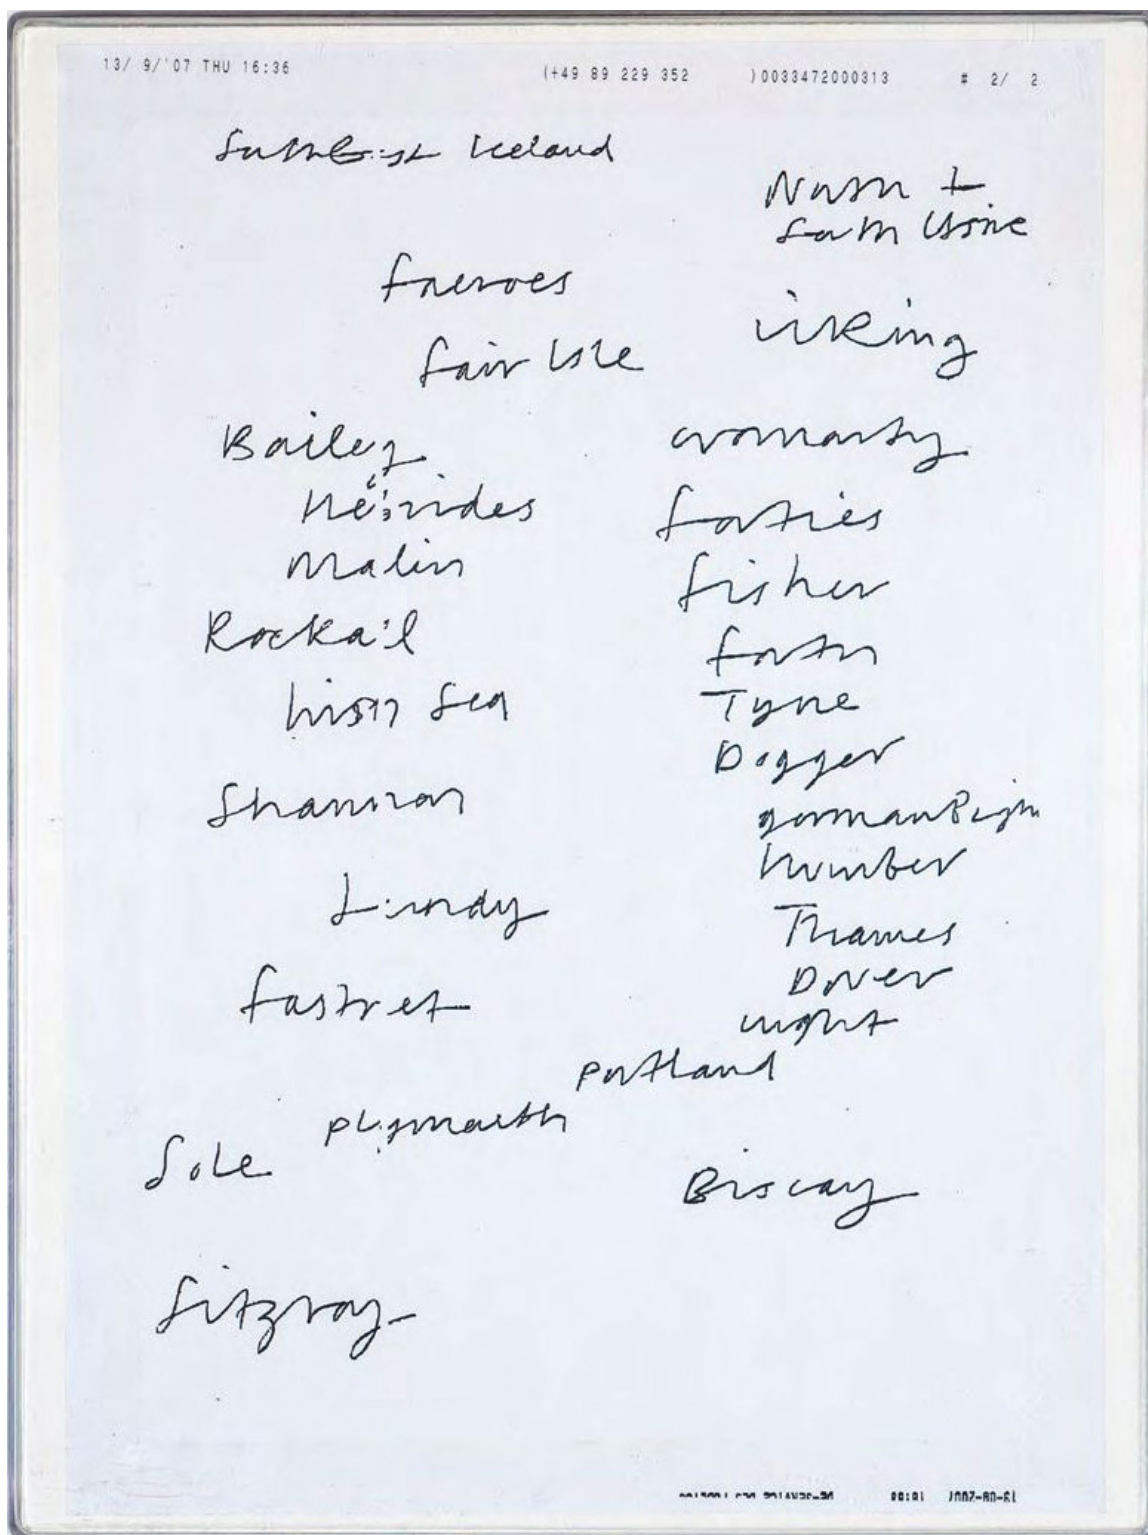 13/ 9/'07 THU 16:36 (+49 89 229 352 )0033472000313 # 2/ 2
South East Iceland
North +
South Utsire
faeroes
fair Isle
viking
Bailey
cromarty
Hebrides
forties
Malin
fisher
Rockall
forth
Irish Sea
Tyne
Dogger
Shannon
german Bight
humber
Lundy
Thames
Dover
fastnet
wight
portland
plymouth
Sole
Biscay
fitzroy